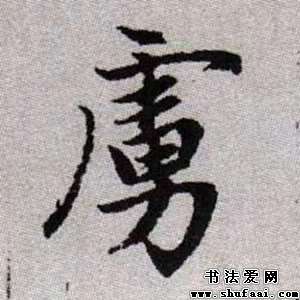 虜
书法爱网
www.shufaai.com